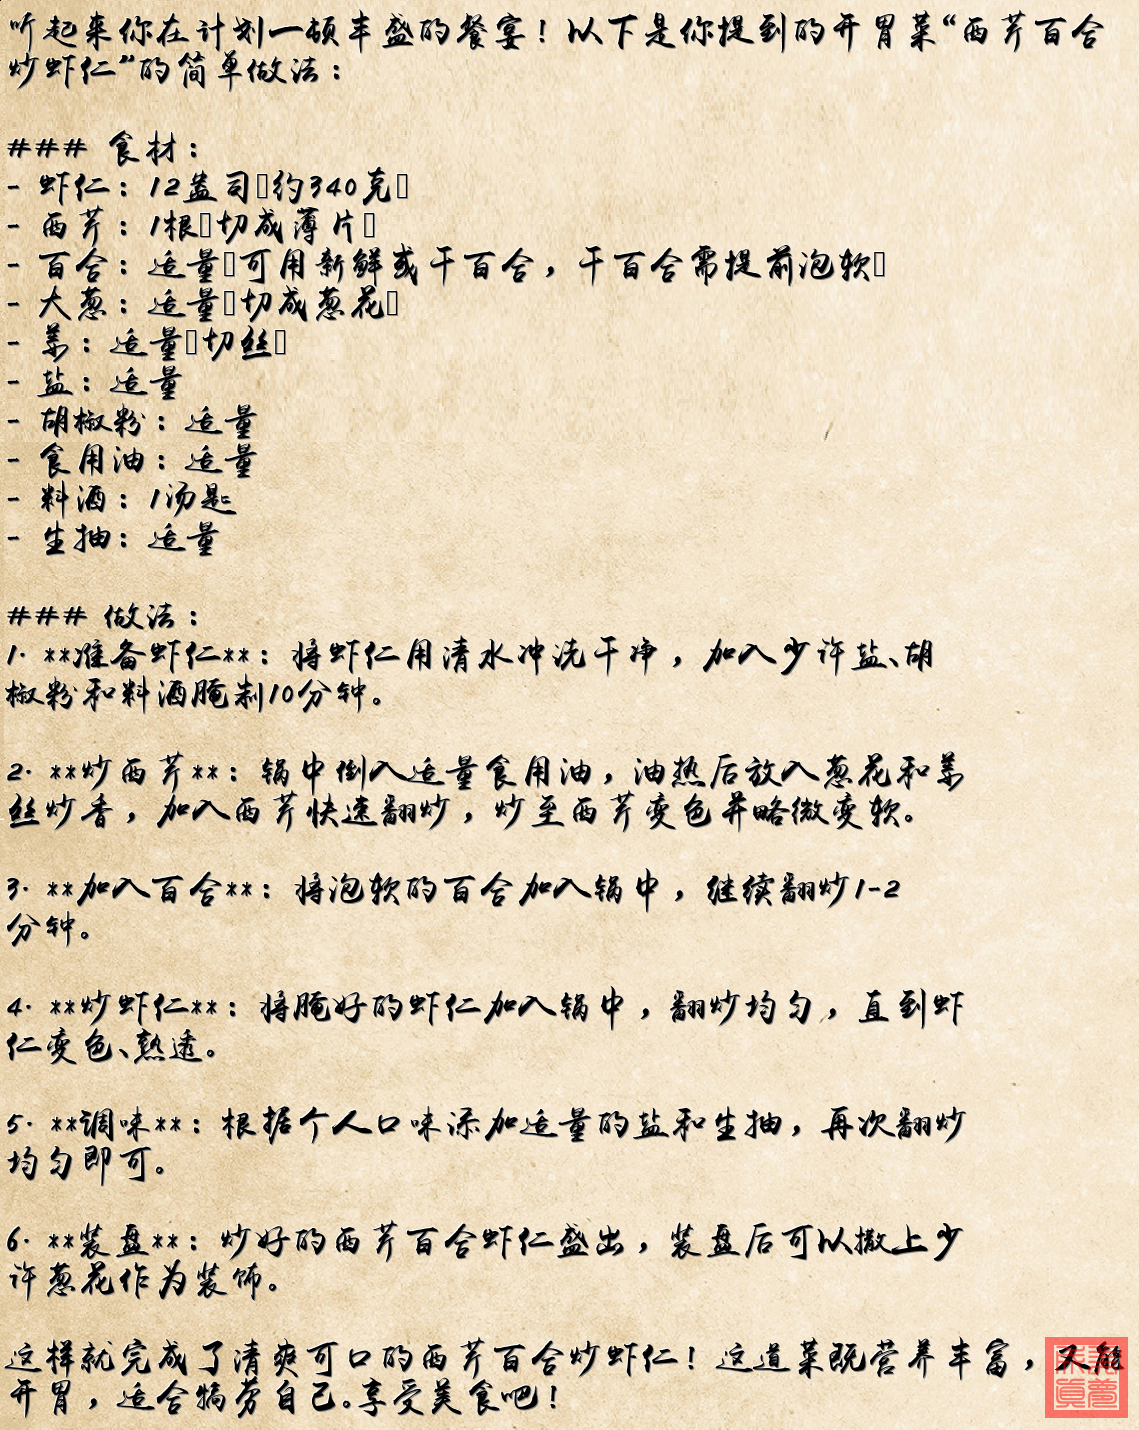 听起来你在计划一顿丰盛的餐宴！以下是你提到的开胃菜“西芹百合
炒虾仁”的简单做法：
### 食材：
- 虾仁：12盎司▯约340克▯
- 西芹：1根▯切成薄片▯
- 百合：适量▯可用新鲜或干百合，干百合需提前泡软▯
- 大葱：适量▯切成葱花▯
- 姜：适量▯切丝▯
- 盐：适量
- 胡椒粉：适量
- 食用油：适量
- 料酒：1汤匙
- 生抽：适量
### 做法：
1. **准备虾仁**：将虾仁用清水冲洗干净，加入少许盐、胡
椒粉和料酒腌制10分钟。
2. **炒西芹**：锅中倒入适量食用油，油热后放入葱花和姜
丝炒香，加入西芹快速翻炒，炒至西芹变色并略微变软。
3. **加入百合**：将泡软的百合加入锅中，继续翻炒1-2
分钟。
4. **炒虾仁**：将腌好的虾仁加入锅中，翻炒均匀，直到虾
仁变色、熟透。
5. **调味**：根据个人口味添加适量的盐和生抽，再次翻炒
均匀即可。
6. **装盘**：炒好的西芹百合虾仁盛出，装盘后可以撒上少
许葱花作为装饰。
这样就完成了清爽可口的西芹百合炒虾仁！这道菜既营养丰富，又能
开胃，适合犒劳自己。享受美食吧！